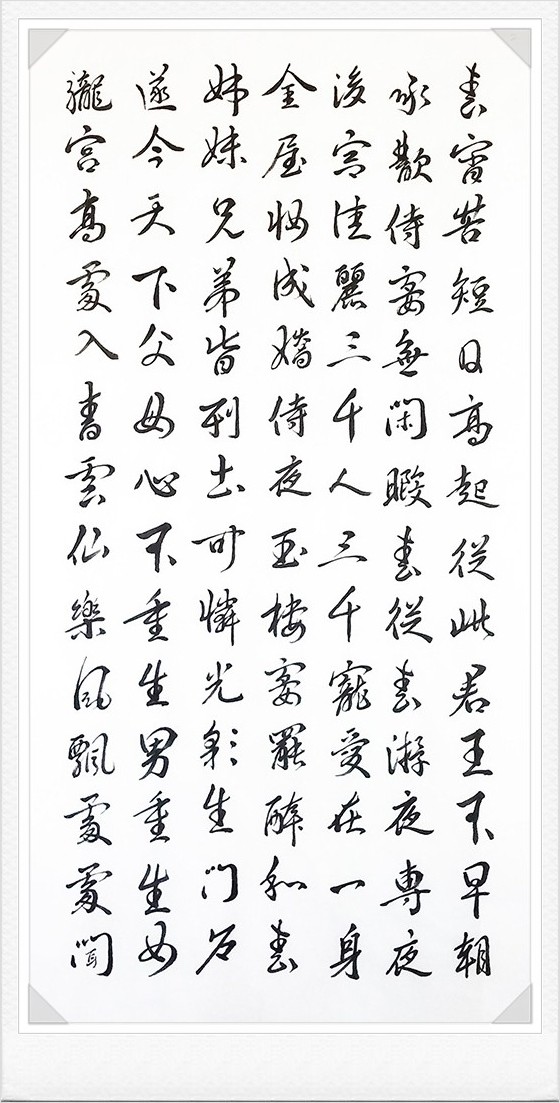 春宵苦短日高起從此君王不早朝
承歡侍宴無閑暇春從春游夜專夜
後宮佳麗三千人三千寵愛在一身
金屋妝成嬌侍夜玉樓宴罷醉和春
姊妹兄弟皆列土可憐光彩生門戶
遂令天下父母心不重生男重生女
驪宮高處入青雲仙樂風飄處處聞